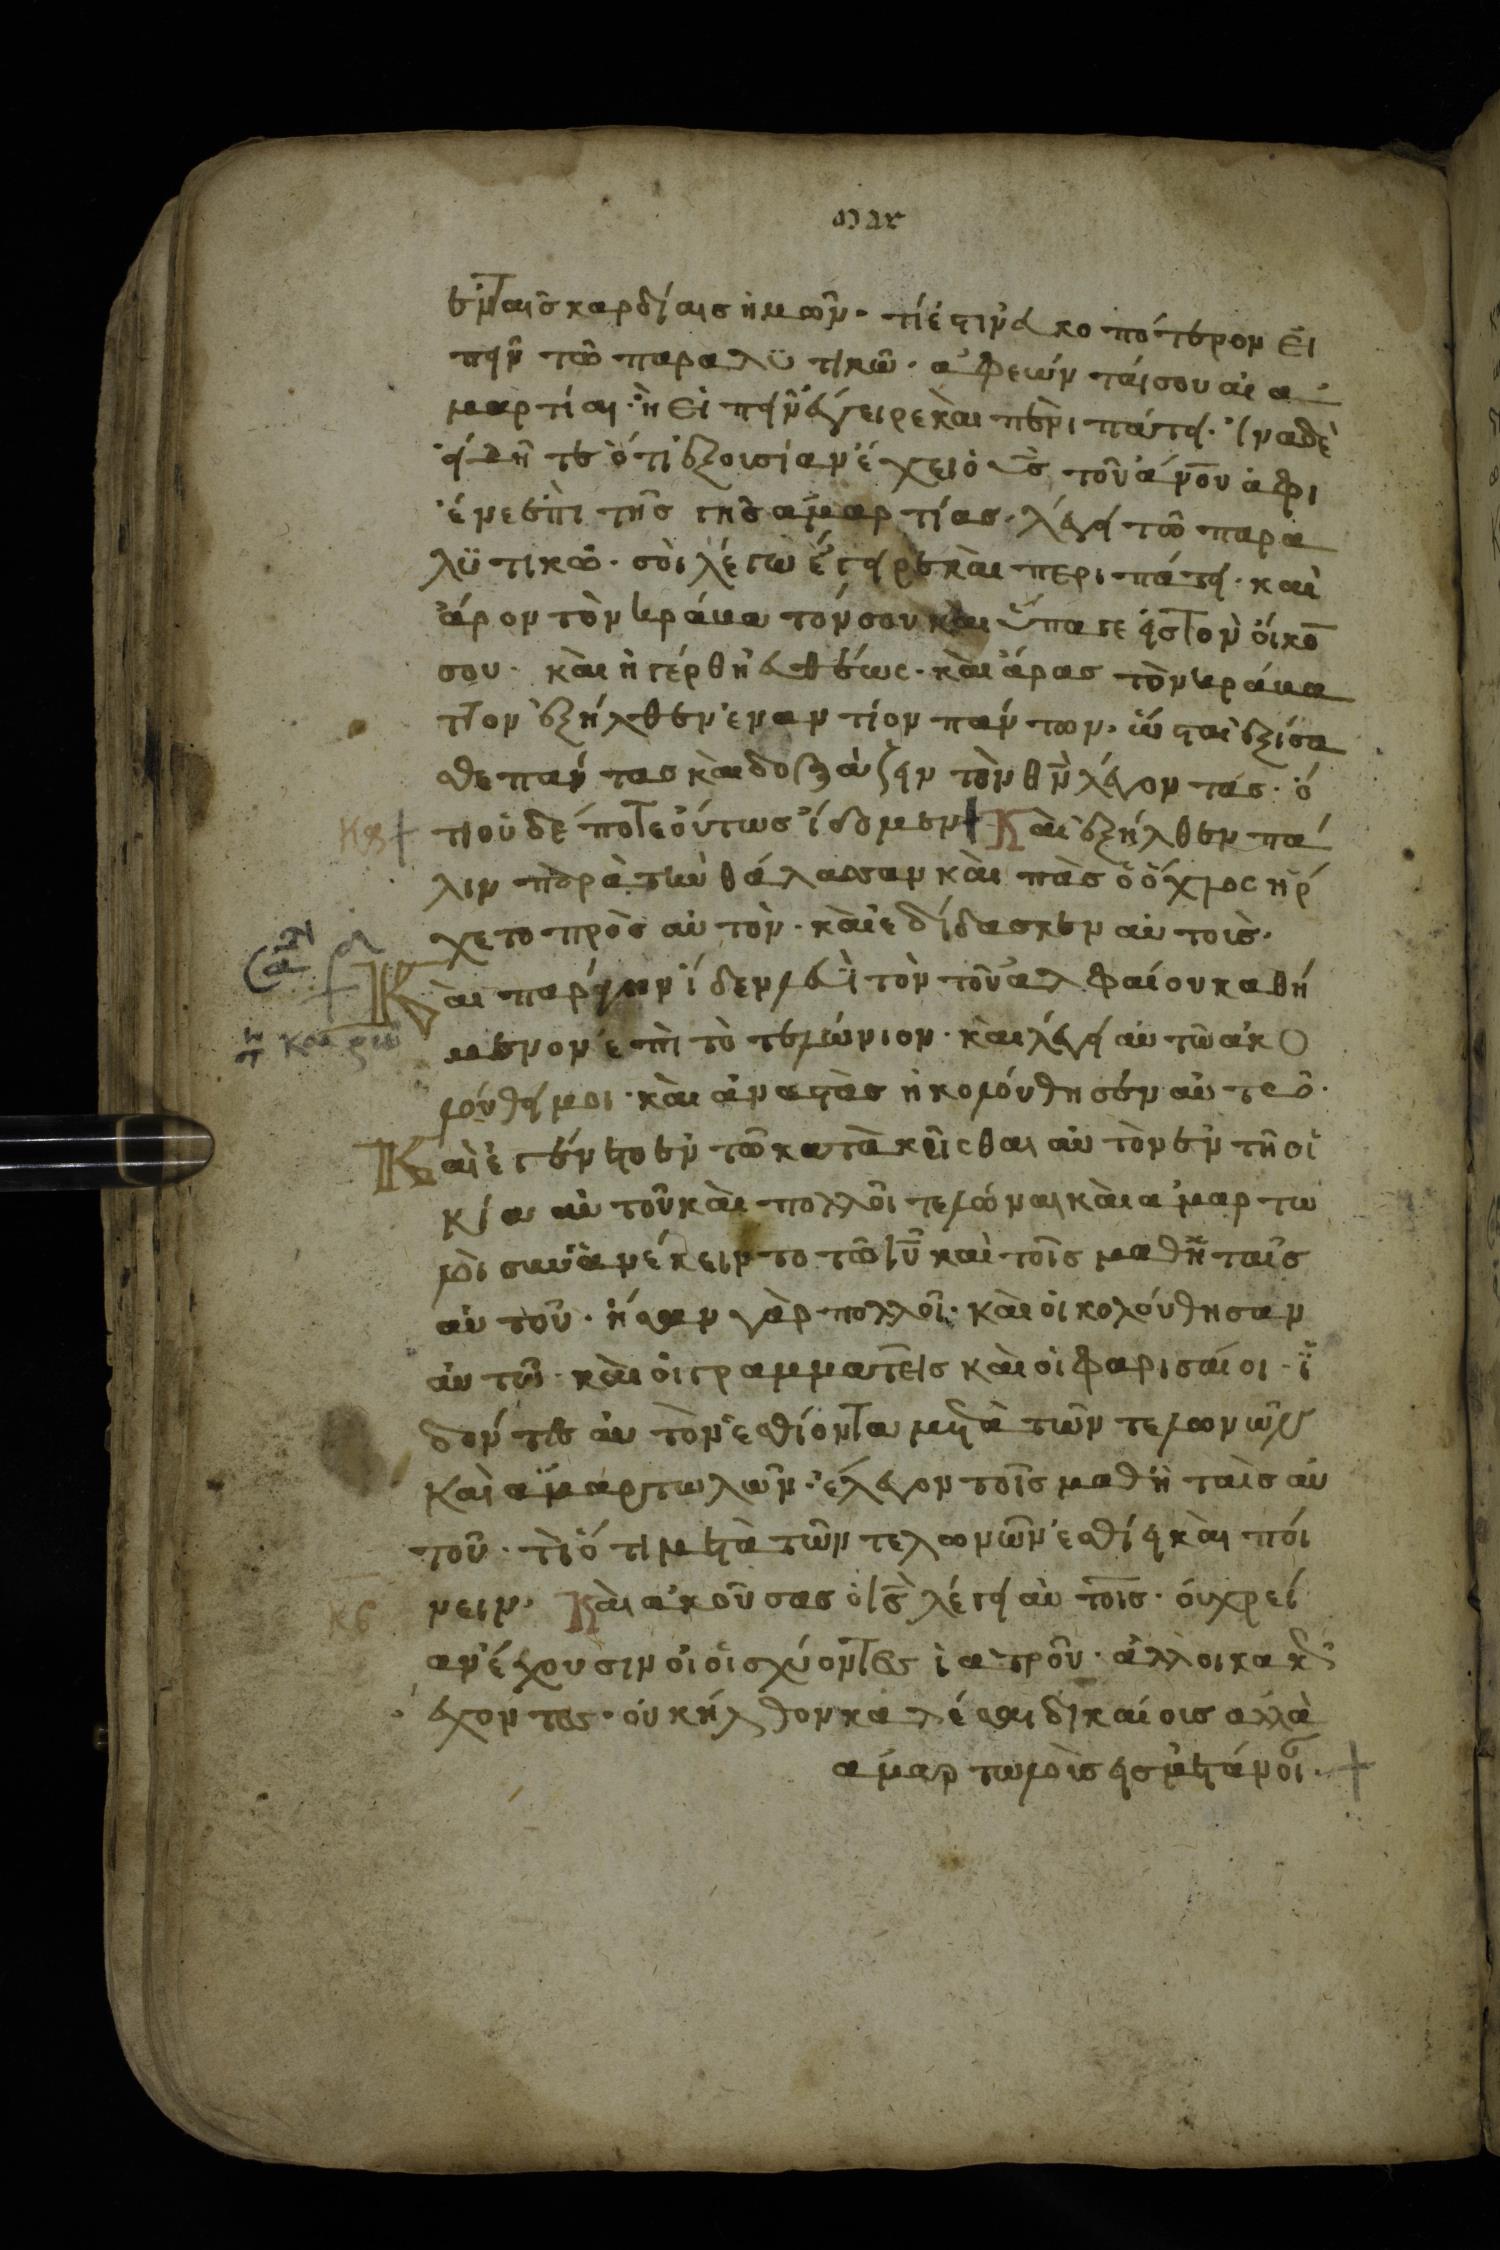 μαρ
ἐν ταῖς καρδίαις ἡμῶν· τί ἐστιν εὐκοπότερον εἰ
πῆν τῶ παραλϋτικῶ· ἀφεών ταί σου αἱ ἁ
μαρτίαι· ἢ εἰπῆν ἔγειρε καὶ περιπάτη· ἵνα δὲ
ἠδῆτε ὅτι ἐξουσίαν ἔχει ὁ υς τοῦ ἀνου ἀφι
ένε ἐπὶ τῆς γῆς ἁμαρτίας· λέγη τῶ παρα
λϋτικῶ· σοὶ λέγω ἔγηρε καὶ περιπάτη· καὶ
ἆρον τὸν κράβα τόν σου καὶ ὕπαγε ἠς τὸν οἶκο
σου· καὶ ἠγέρθη εὐθέως· καὶ ἄρας τὸν κράβα
τον ἐξῆλθεν ἐναντίον πάντων· ὥσται ἐξίσα
θε πάντας καὶ δοξάζην τὸν θν λέγοντας· ὅ
τι οὐδέποτε οὕτως ἴδομεν + Καὶ ἐξῆλθεν πά
λιν παρὰ τὴν θάλασσαν καὶ πὰς ὁ ὄχλος ἤρ
χετο πρὸς αὐτὸν· καὶ ἐδίδασκεν αὐτοις·
Καὶ παράγων ἴδεν λευὶ τὸν τοῦ ἀλφαίου καθή
μενον ἐπὶ τὸ τελώνιον· καὶ λέγη αὐτῶ ἀκο
λούθη μοι· καὶ ἀναστὰς ἠκολούθησεν αὐτῶ·
Καὶ ἐγένετο ἐν τῶ κατακεῖσθαι αὐτὸν ἐν τῆ οἰ
κία αὐτοῦ καὶ πολλοὶ τελώναι καὶ ἁμαρτω
λοὶ συνανέκειντο τῶ ιυ καὶ τοῖς μαθηταῖς
αὐτοῦ· ἦσαν γὰρ πολλοὶ· καὶ οἰκολούθησαν
αὐτῶ· καὶ οἱ γραμματεῖς καὶ οἱ φαρισαίοι· ἰ
δόντες αὐτὸν ἐσθίοντα μετὰ τῶν τελωνῶν
καὶ ἁμαρτωλῶν· ἔλεγον τοῖς μαθηταῖς αὐ
τοῦ· τὶ ὅτι μετὰ τῶν τελωνῶν ἐσθίη καὶ πόι
νειν· Καὶ ἀκούσας ὁ ις λέγη αὐτοῖς· οὐ χρεί
αν ἔχουσιν οἱ οἰσχύοντες ἰατροῦ· ἀλλ οἱ κακῶς
ἔχοντες· οὐκ ἦλθον καλέσαι δικαίοις ἀλλὰ
ἁμαρτωλοὶς ἠς μετάνοι· +